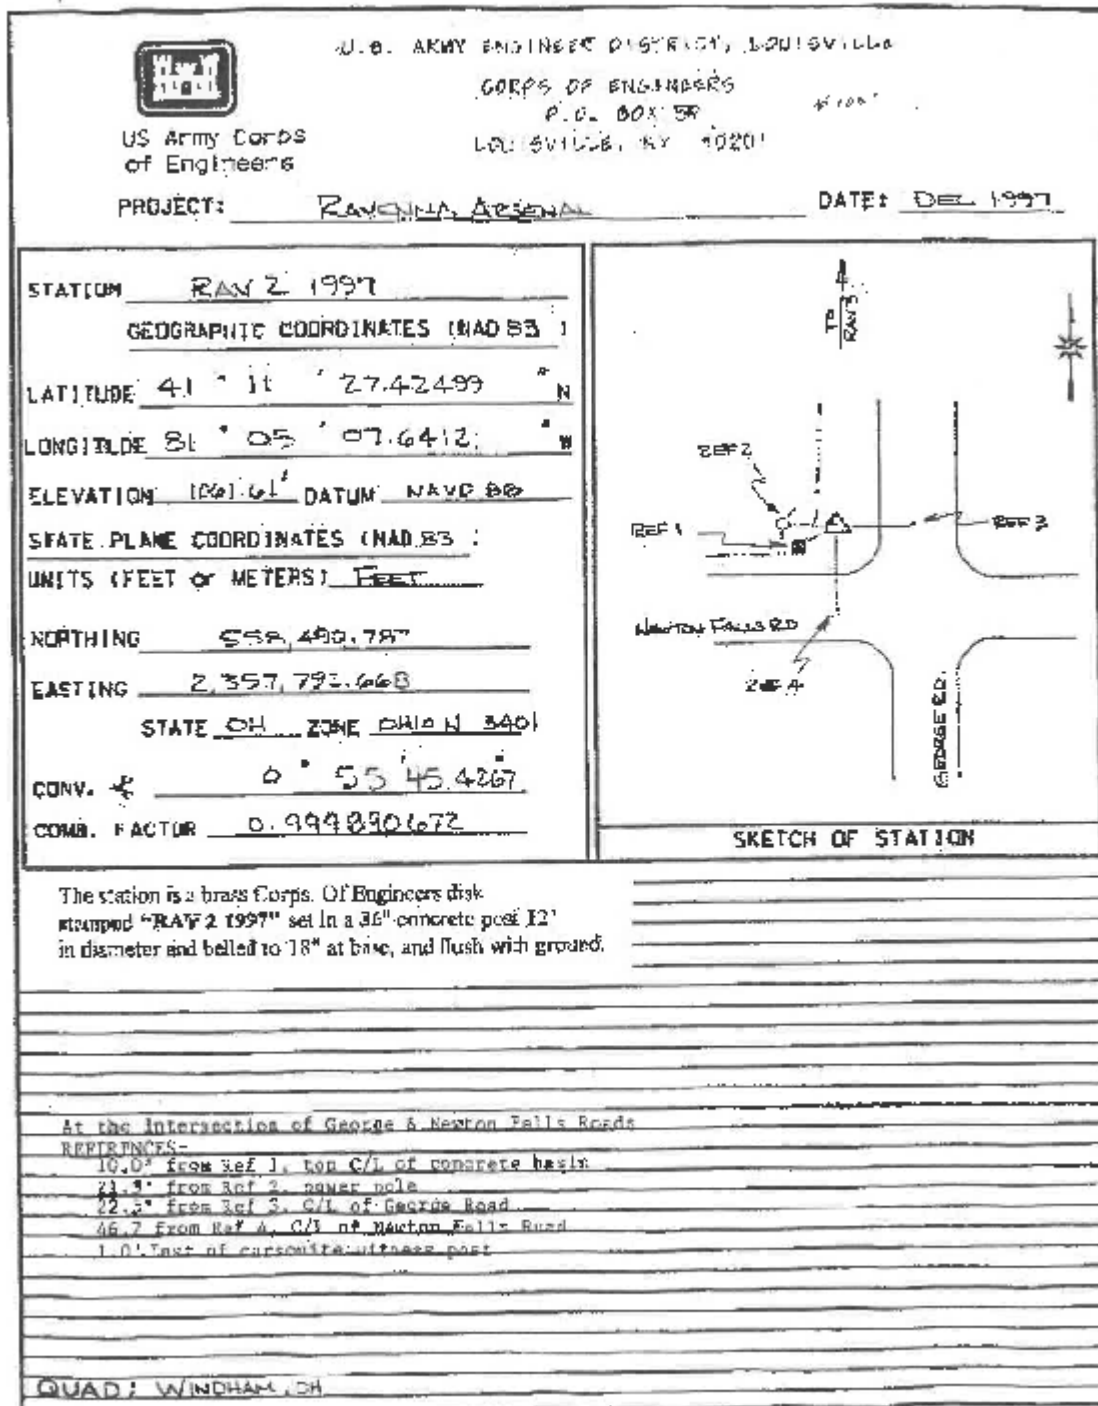 U.S. ARMY ENGINEER DISTRICT, LOUISVILLE
CORPS OF ENGINEERS
P.O. BOX 59
LOUISVILLE, KY 40201
US Army Corps
of Engineers
PROJECT: RAVENNA ARSENAL
DATE: DEC 1997
STATION RAV 2 1997
GEOGRAPHIC COORDINATES (NAD 83 )
LATITUDE 41 ° 11 ' 27.42499 " N
LONGITUDE 81 ° 05 ' 07.6412 " W
ELEVATION 1061.61' DATUM NAVD 88
STATE PLANE COORDINATES (NAD 83 )
UNITS (FEET or METERS) FEET
NORTHING 558,490.787
EASTING 2,357,793.668
STATE OH ZONE OHIO N 3401
CONV. 0 ° 55 ' 45.4267 "
COMB. FACTOR 0.9998990672
TO
RAV 3
REF 2
REF 1
REF 3
NEWTON FALLS RD
REF 4
GEORGE RD.
SKETCH OF STATION
The station is a brass Corps. Of Engineers disk
stamped "RAV 2 1997" set in a 36" concrete post 12"
in diameter and belled to 18" at base, and flush with ground.
At the Intersection of George & Newton Falls Roads
REFERENCES-
10.0' from Ref 1, top C/L of concrete basin
21.5' from Ref 2, power pole
22.5' from Ref 3, C/L of George Road
46.7 from Ref 4, C/L of Newton Falls Road
1.0' of carsonite witness post
QUAD: WINDHAM, OH